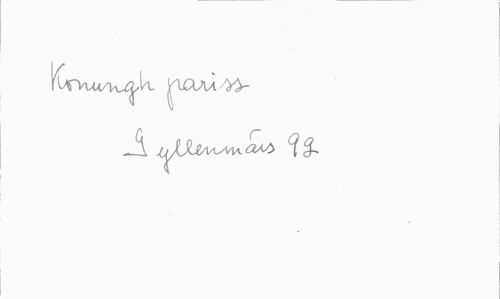 Konungh pariss
Gyllenmärs 99